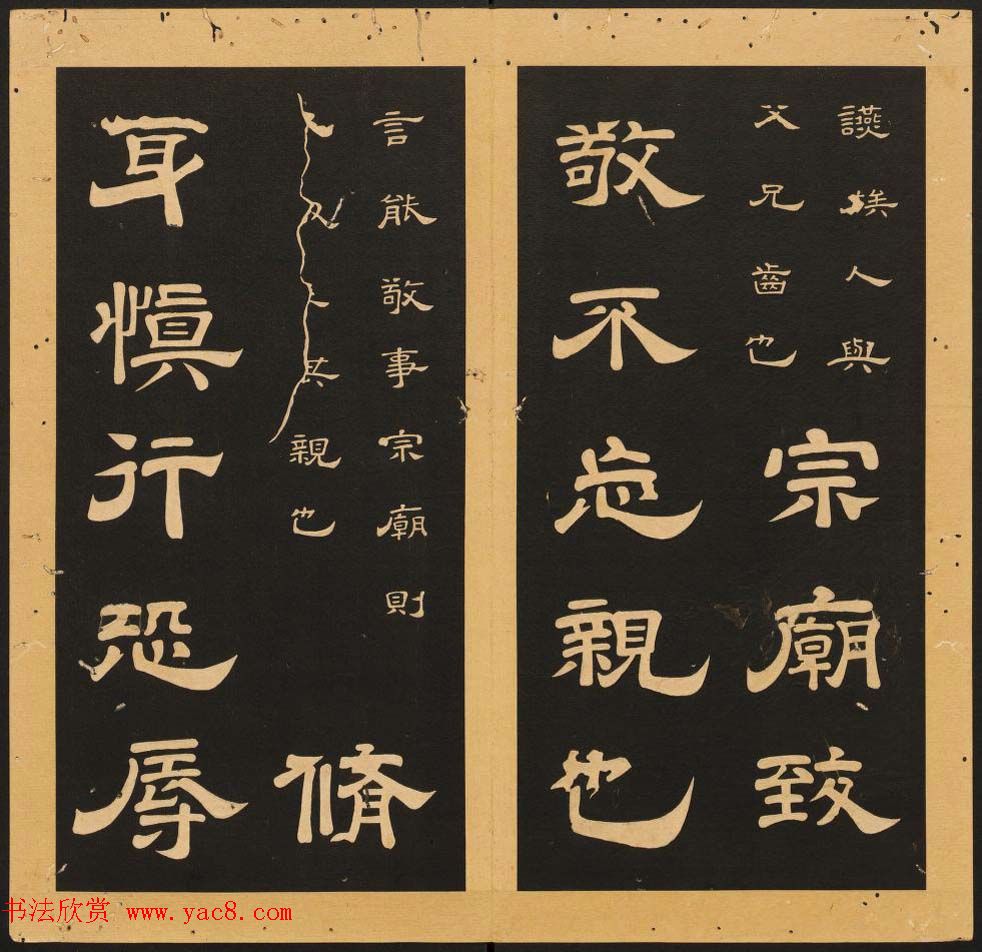 讌族人與
父兄齒也
宗廟致
敬不忘親也
言能敬事宗廟則
其親也
脩
身慎行恐辱
书法欣赏 www.yac8.com